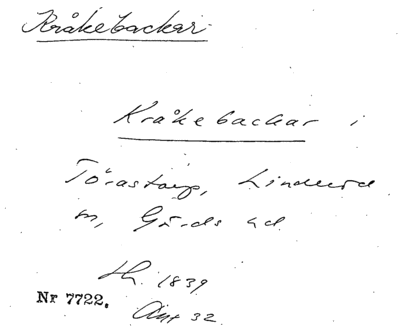 Kråkebackar
Kråkebackar i
Törastorp, Linderöd
sn, Gärds hd
Lh. 1839
Nr 7722.
Akt 32